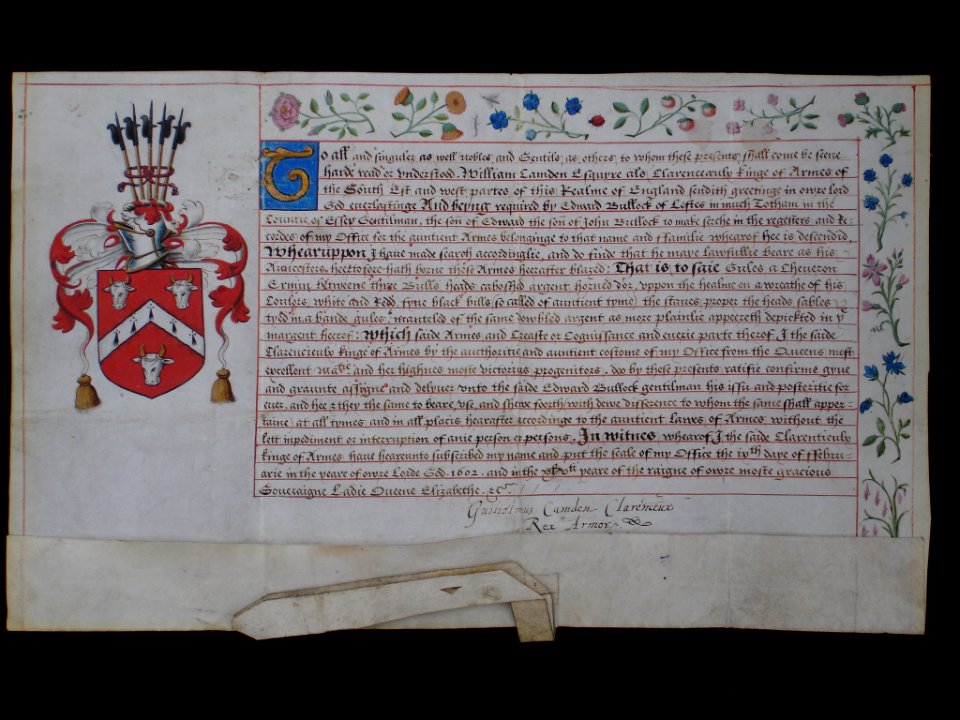 To all and singuler as well nobles and Gentils as others to whom these presents shall come be seene
harde read or understood. William Camden Esquyre alo Clarenceauly kinge of Armes of
the South Est and west partes of this Realme of England sendith greetinge in owre lord
God everlastinge And beyng required by Edward Bullock of Loftes in much Totham in the
Countie of Essex Gentilman, the son of Edward the son of John Bullock to make serche in the regesters and Re-
cordes of my Office for the auntient Armes belonginge to that name and ffamilie whearof hee is descendid.
Whearuppon I have made search accordinglie, and do finde that he maye lawfullie beare as his
Auncesters heeretofore hath borne these Armes heerafter blazed: That is to saie Gules a Cheveron
Ermin betweene three Bulls heads caboshd argent horned Dor, uppon the healme on a wreathe of his
Coullers white and Redd, fyve black bills (so called of auntient tyme) the staves proper the heads sables
tyed in a bande gules, manteled of the same dowbled argent as more plainlie appeereth depickted in y
margent heerof: Which saide Armes and Creaste or Cognissance and everie parte therof I the saide
Clarencieulx kinge of Armes by the aucthoritie and auntient costome of my Office from the Queens most
excellent Matie and her highnes moste victorius progenitors, doo by these presents ratifie confirme gyve
and graunte assigne and delyver unto the saide Edward Bullock gentilman his issu and posteritie for
ever, and hee & they the same to beare, use, and shew foorth with dewe difference to whom the same shall apper-
taine at all tymes and in all placis hearafter accordinge to the auntient lawes of Armes without the
lett inpediment or interruption of anie person or persons. In witnes whearof I the saide Clarentieulx
kinge of Armes have hearunto subscribed my name and putt the seale of my Office the ixth daye of ffebru-
arie in the yeare of owre Lorde God. 1602. and in the xlvth yeare of the raigne of owre moste gracious
Soveraigne Ladie Queene Elizabethe. &c
Guilielmus Camden Clarenceux
Rex Armor